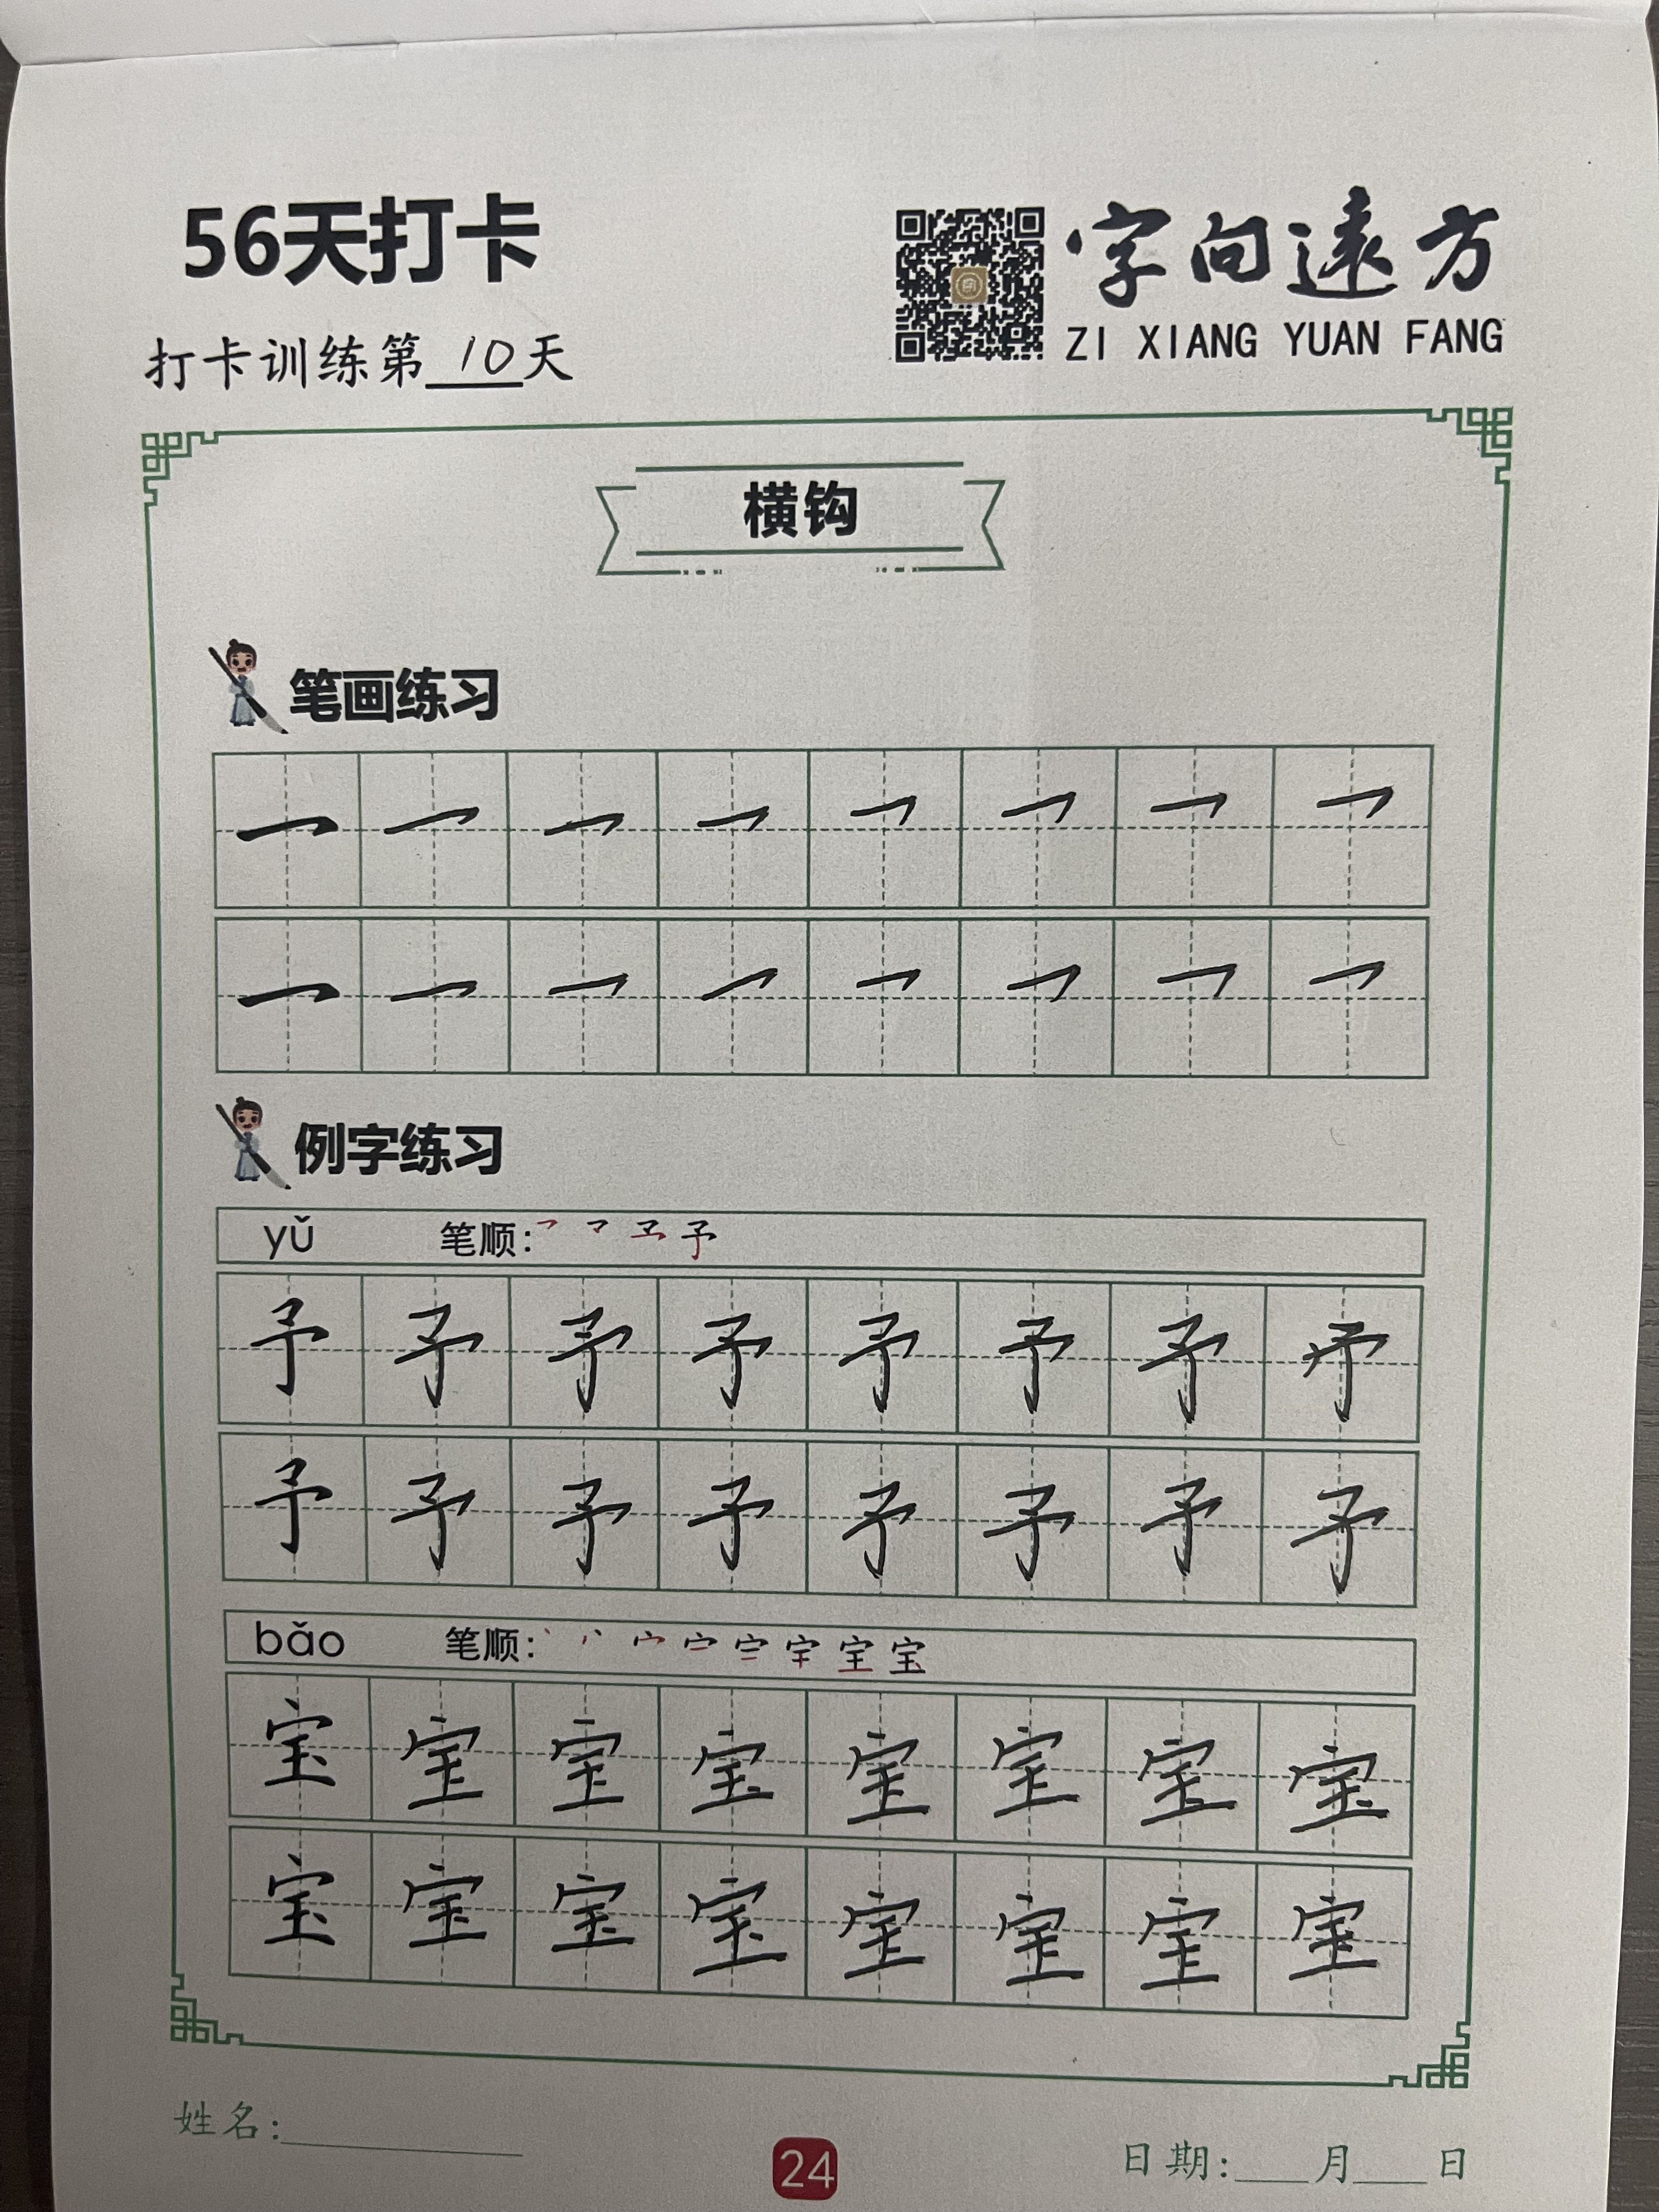 56天打卡
字向遠方
ZI XIANG YUAN FANG
打卡训练第10天
横钩
笔画练习
㇖ ㇖ ㇖ ㇖ ㇖ ㇖ ㇖ ㇖
㇖ ㇖ ㇖ ㇖ ㇖ ㇖ ㇖ ㇖
例字练习
yǔ 笔顺: 予
予 予 予 予 予 予 予 予
予 予 予 予 予 予 予 予
bǎo 笔顺: 宝
宝 宝 宝 宝 宝 宝 宝 宝
宝 宝 宝 宝 宝 宝 宝 宝
姓名:
24
日期: 月 日